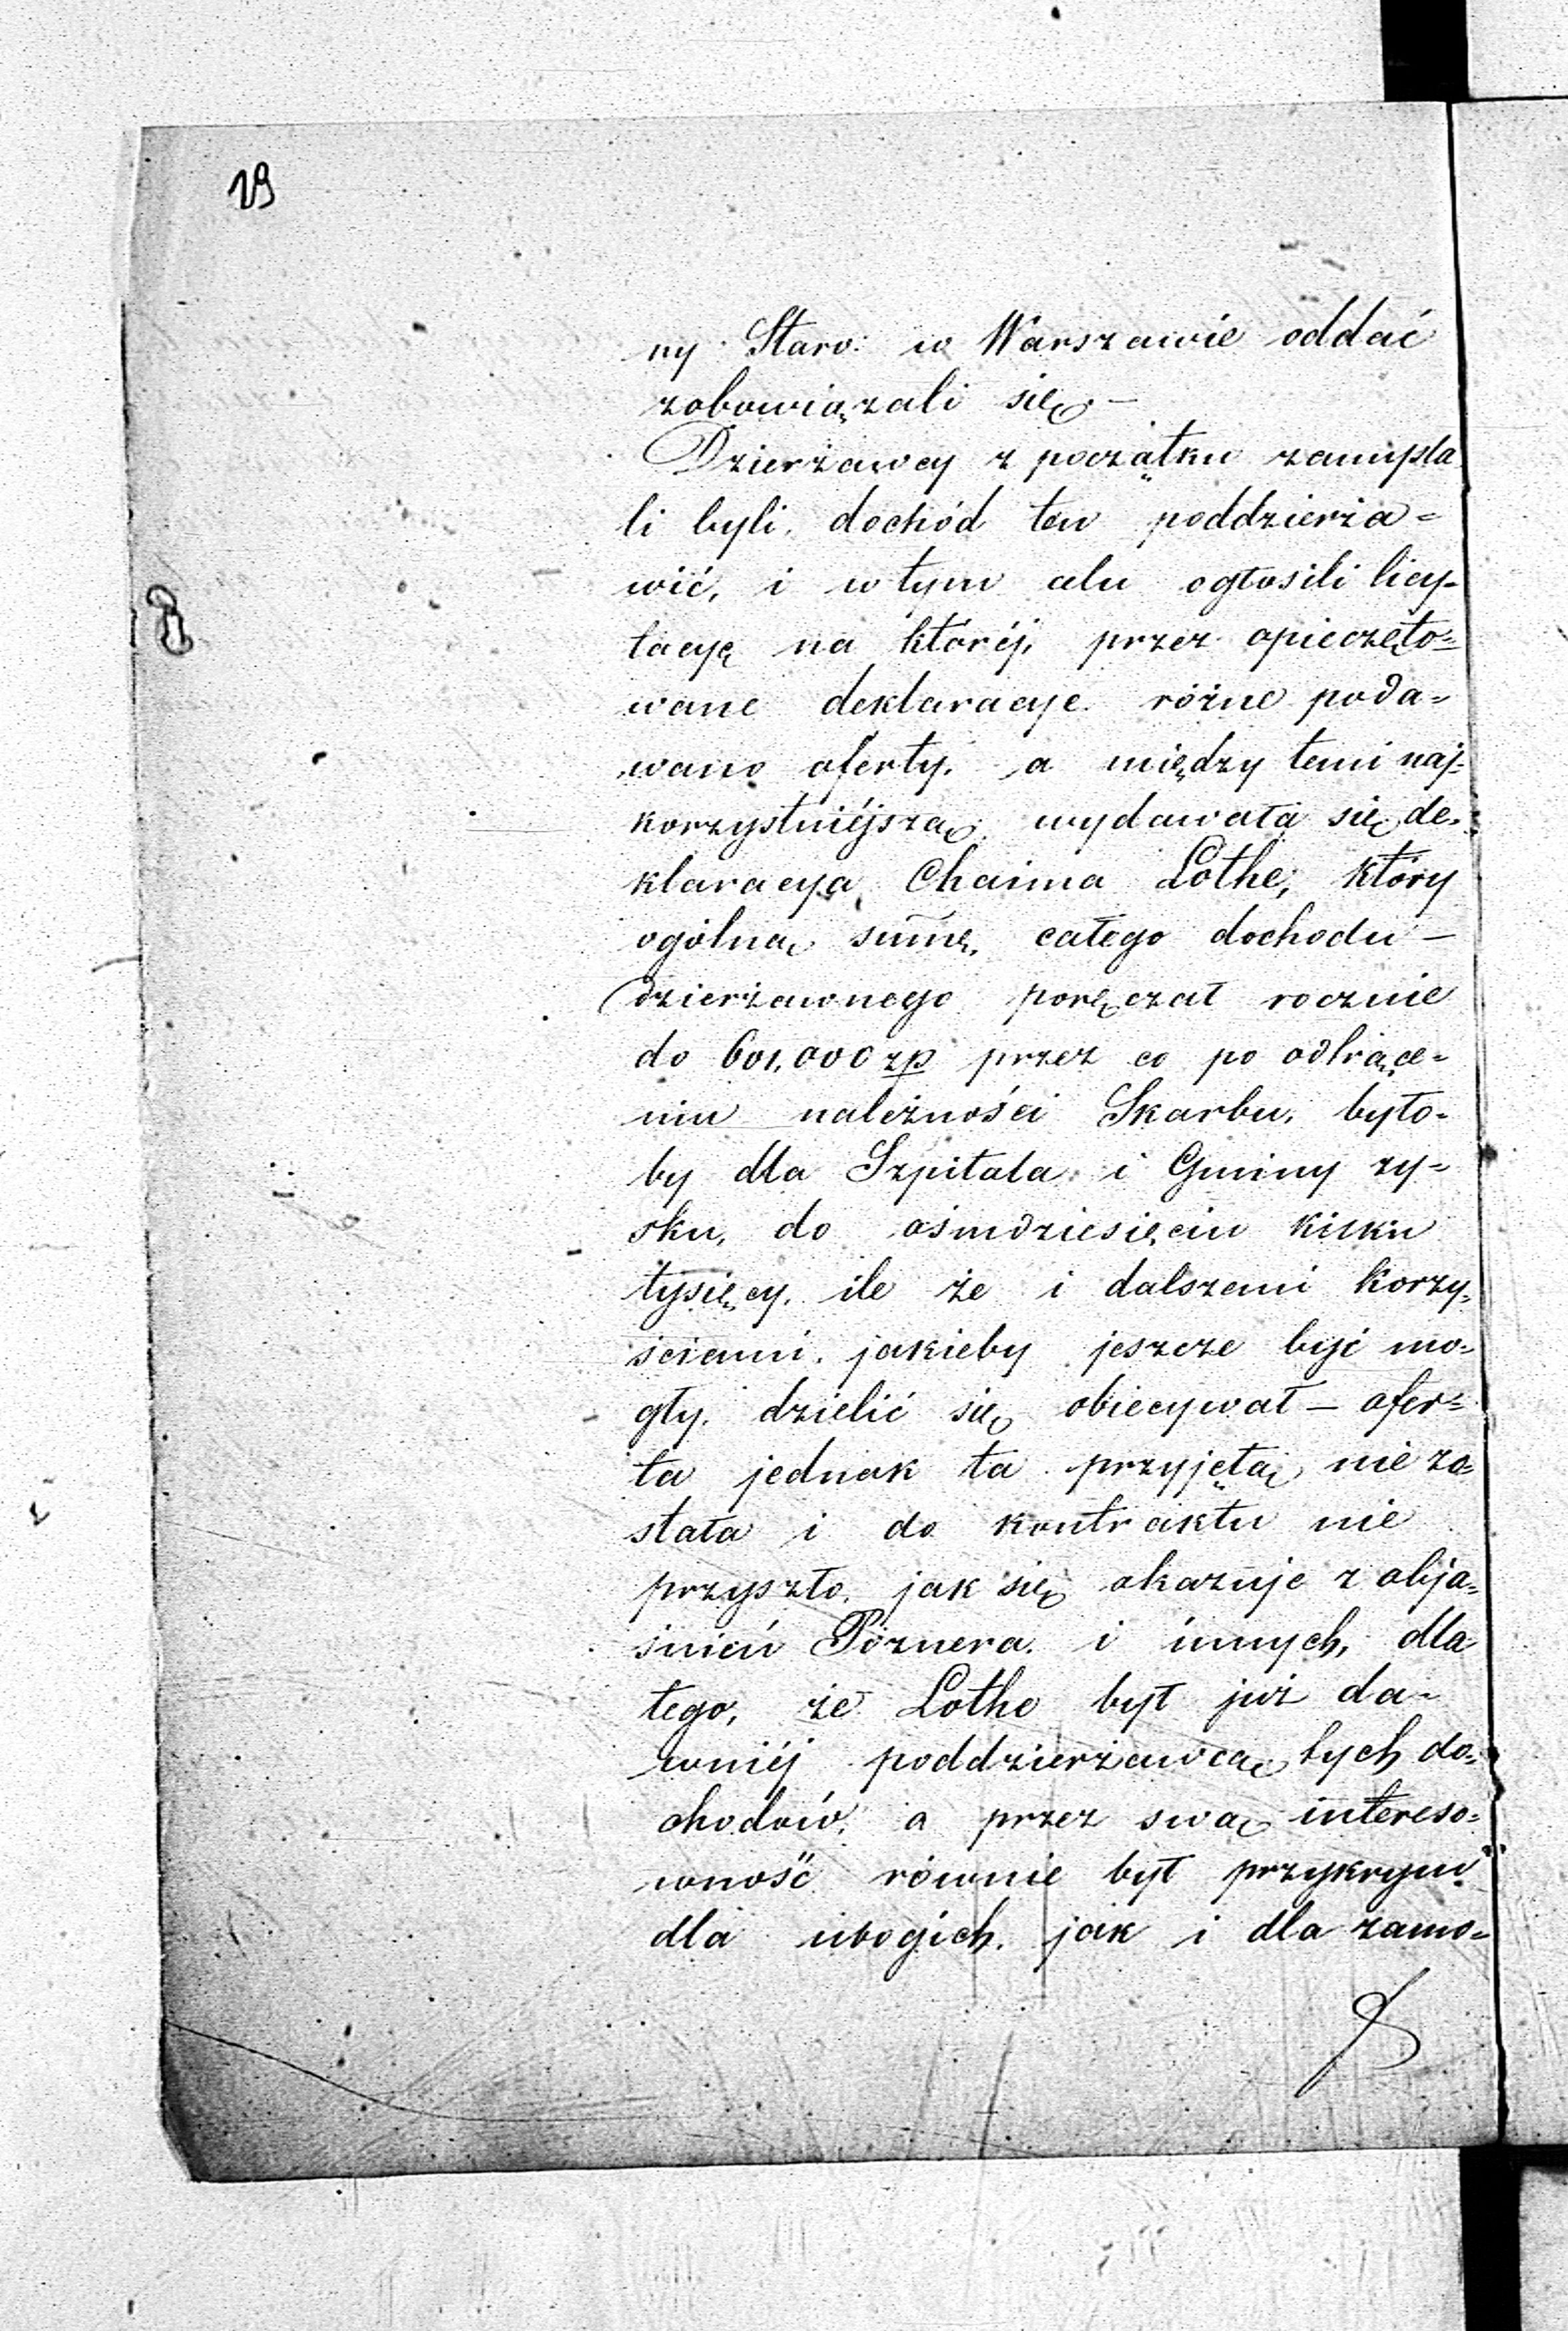 29
ny Staro: w Warszawie oddać
zobowiązali się —
Dzierżawcy z początku zamyśla
li byli, dochód ten poddzierża=
wić, i w tym celu ogłosili licy-
tacyę na któréj, przez opieczęto=
wane deklaracye różne poda=
wano oferty, a między temi naj-
korzystniéjszą wydawała się de-
klaracya Chaima Lothe, który
ogólną summę, całego dochodu —
dzierżawnego poręczał rocznie
do 601,000 zp przez co po odtrące-
niu należności Skarbu, było-
by dla Szpitala i Gminy zy=
sku, do ośmdziesięciu kilku
tysięcy, ile że i dalszemi korzy-
ściami, jakieby jeszcze być mo-
gły, dzielić się obiecywał — ofer=
ta jednak ta przyjętą nie zo=
stała i do kontraktu nie
przyszło, jak się okazuje z obja-
śnień Poznera i innych, dla
tego, że Lothe był już da-
wniéj poddzierżawcą tych do-
chodów, a przez swą intereso-
wność równie był przykrym
dla ubogich, jak i dla zamo-